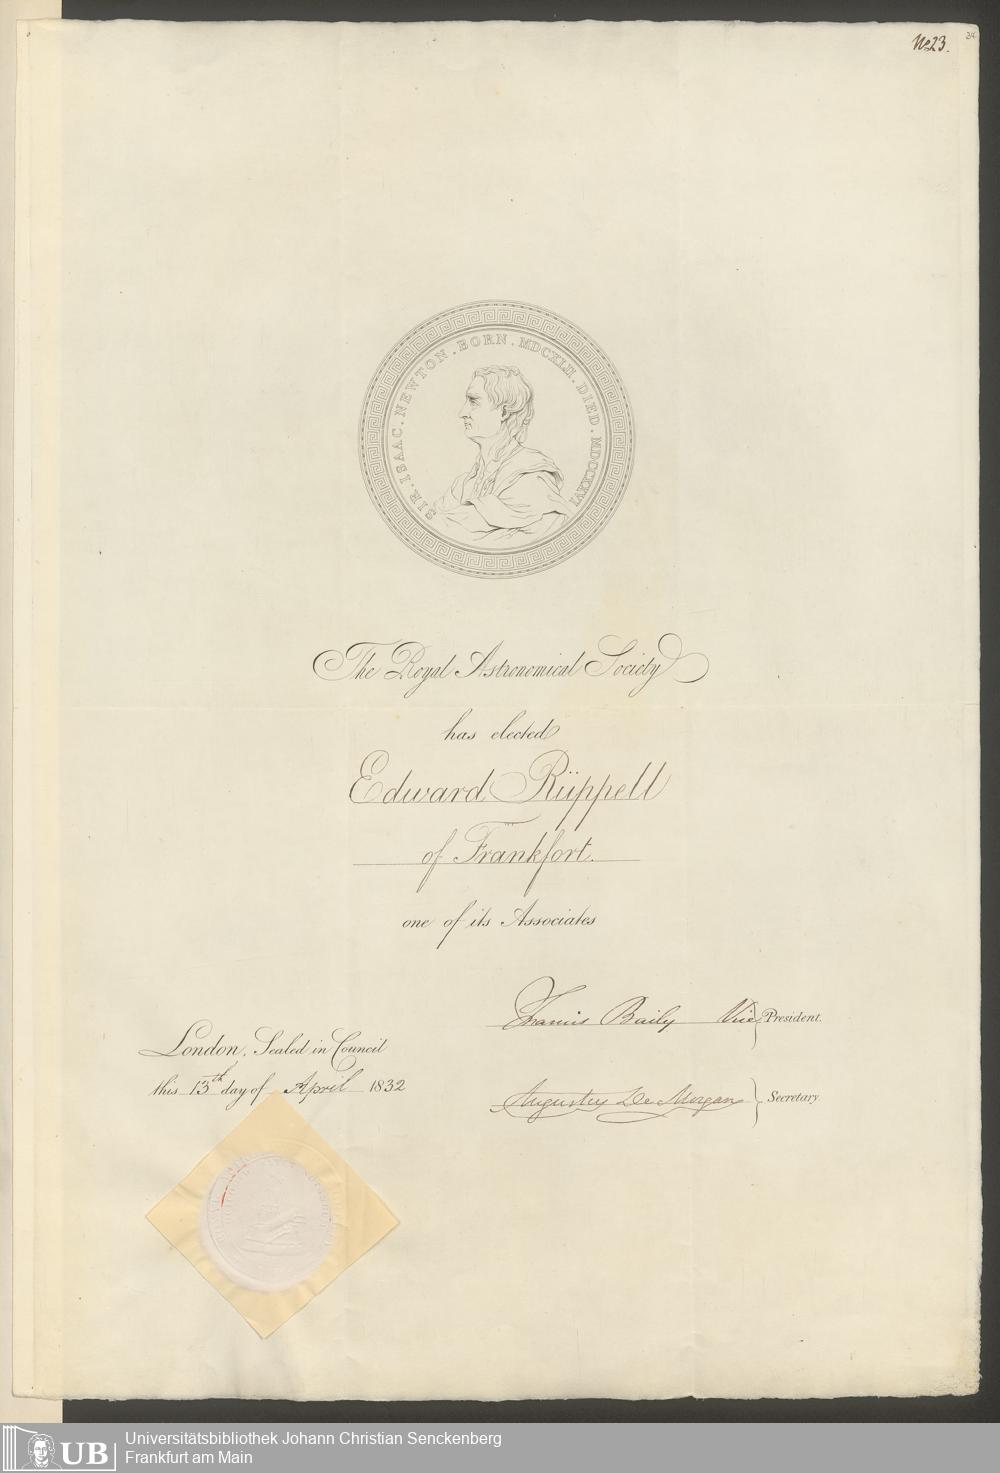 No 23.
34
SIR. ISAAC. NEWTON. BORN. MDCXLII. DIED. MDCCXXVI
The Royal Astronomical Society
has elected
Edward Rüppell
of Frankfort.
one of its Associates
Francis Baily Vice President.
London, Sealed in Council
this 13th day of April 1832
Augustus De Morgan Secretary.
UB
Universitätsbibliothek Johann Christian Senckenberg
Frankfurt am Main